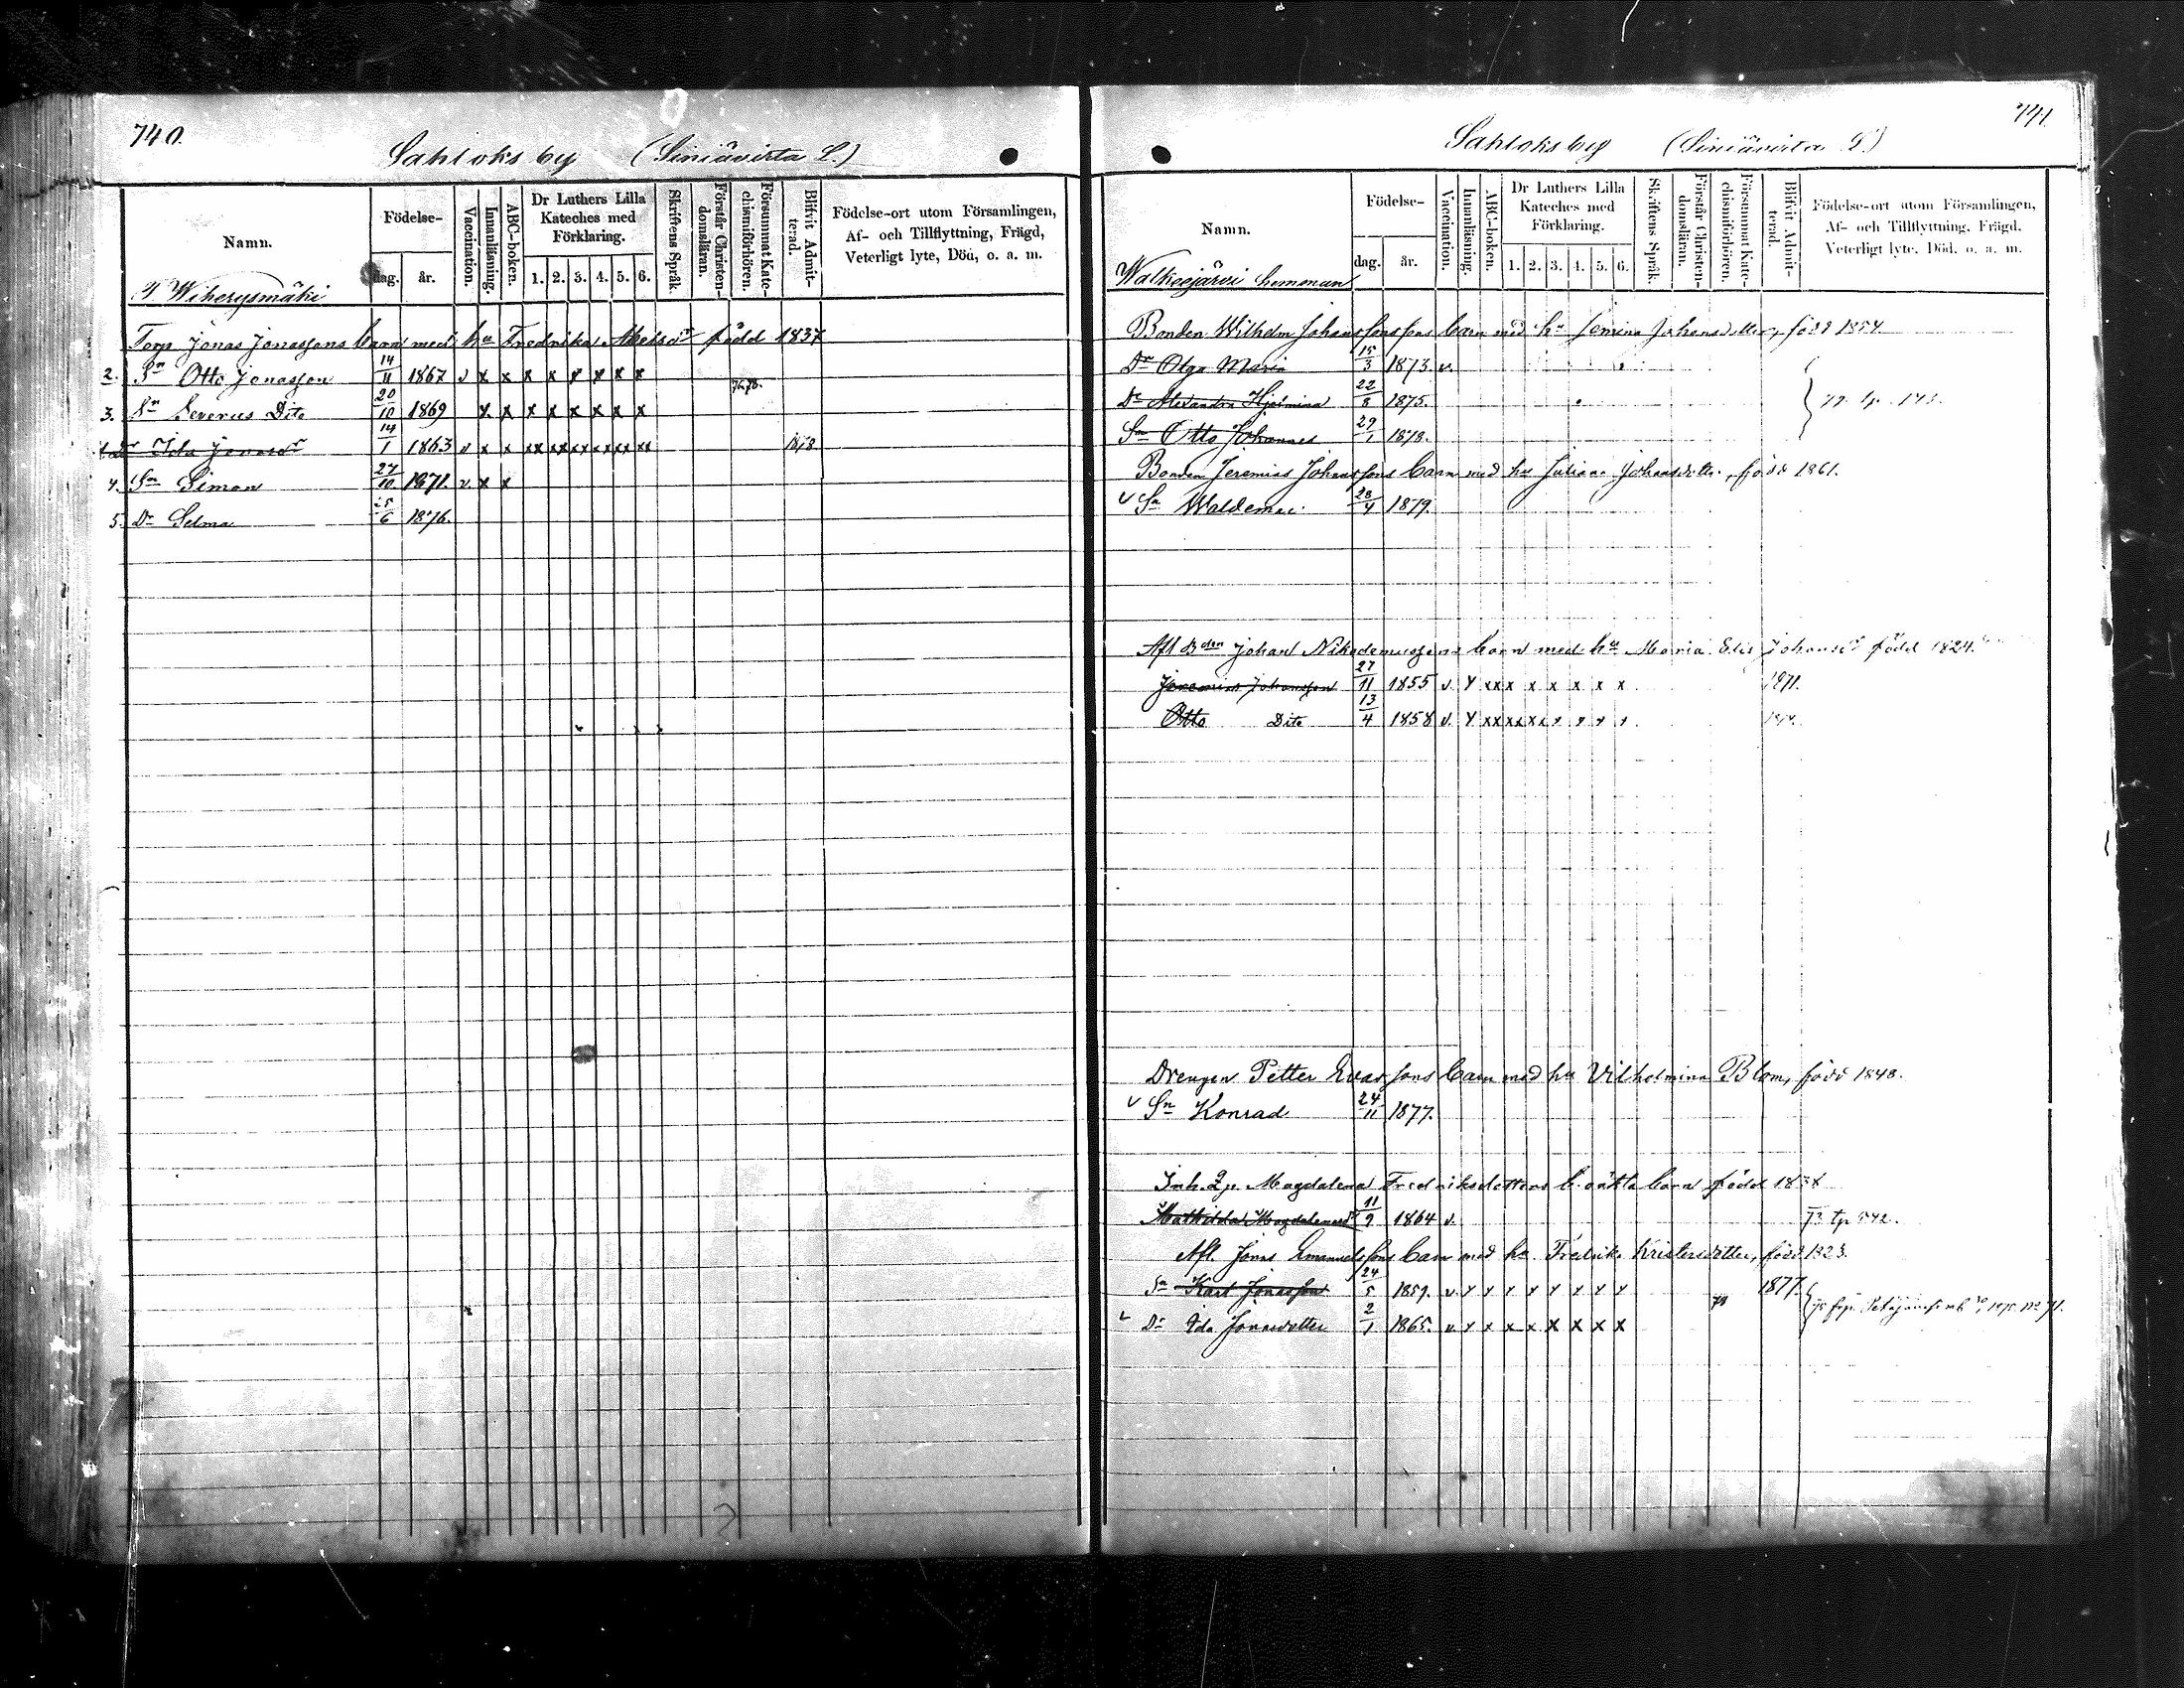 740.
Sahloks by (Siniävirta L.)
Namn.
Födelse-
dag.
år.
Vaccination.
Innanläsning.
ABC-boken.
Dr Luthers Lilla Kateches med Förklaring.
1. 2. 3. 4. 5. 6.
Skriftens Språk.
Förstår Christendomsläran.
Försummat Katechismiförhören.
Blifvit Admitterad.
Födelse-ort utom Församlingen, Af- och Tillflyttning, Frägd, Veterligt lyte, Död, o. a. m.
T. Wiherysmäki
Torp. Jonas Jonassons barn med hu Fredrika Abelsdr född 1837
2. Sn Otto Jonasson 14/11 1867 v x x x x x x x x
3. Sn Severus Dito 20/10 1869 x x x x x x x x 76.78.
1. Dr Ida Jonasdr 14/1 1863 v x x xx xx xx xx xx xx 1878
4. Sn Simon 27/10 1871. v x x
5. Dr Selma 25/6 1876.
741.
Sahloks by (Siniävirta L.)
Namn.
Födelse-
dag.
år.
Vaccination.
Innanläsning.
ABC-boken.
Dr Luthers Lilla Kateches med Förklaring.
1. 2. 3. 4. 5. 6.
Skriftens Språk.
Förstår Christendomsläran.
Försummat Katechismiförhören.
Blifvit Admitterad.
Födelse-ort utom Församlingen, Af- och Tillflyttning, Frägd, Veterligt lyte, Död, o. a. m.
Walkeejärvi hemman
Bonden Wilhelm Johanssons barn med hu Johansdotter, född 1854
Dr Olga Maria 15/3 1873. v.
Dr Alexandra Hjelmina 22/8 1875.
Sn Otto Johannes 29/1 1878.
Bonden Jeremias Johanssons barn med hu Juliana Johansdotter, född 1861.
v Sn Waldemar 28/4 1879.
Afl Bden Johan Nikodemussons barn med hu Maria Elis Johansdr född 1824.
Jeremias Johansson 27/11 1855 v. x xx x x x x x x 1871.
Otto Dito 13/4 1858 v. x xx xx xx x x x x
Drengen Petter Evassons barn med hu Vilhelmina Blom, född 1848.
v Sn Konrad 24/11 1877.
Inh. Qp. Magdalena Fredriksdotters o.äkta barn född
Mathilda Magdalenasdr 11/9 1864 v. 73 tp 842.
Afl. Jonas Emanuelssons barn med hu Fredrika Kristersdotter, född 1823.
Sn Karl Jonasson 24/5 1859. v. x x x x x x x x 1877.
v Dr Ida Jonasdotter 2/1 1865. v x x x x x x x x 78